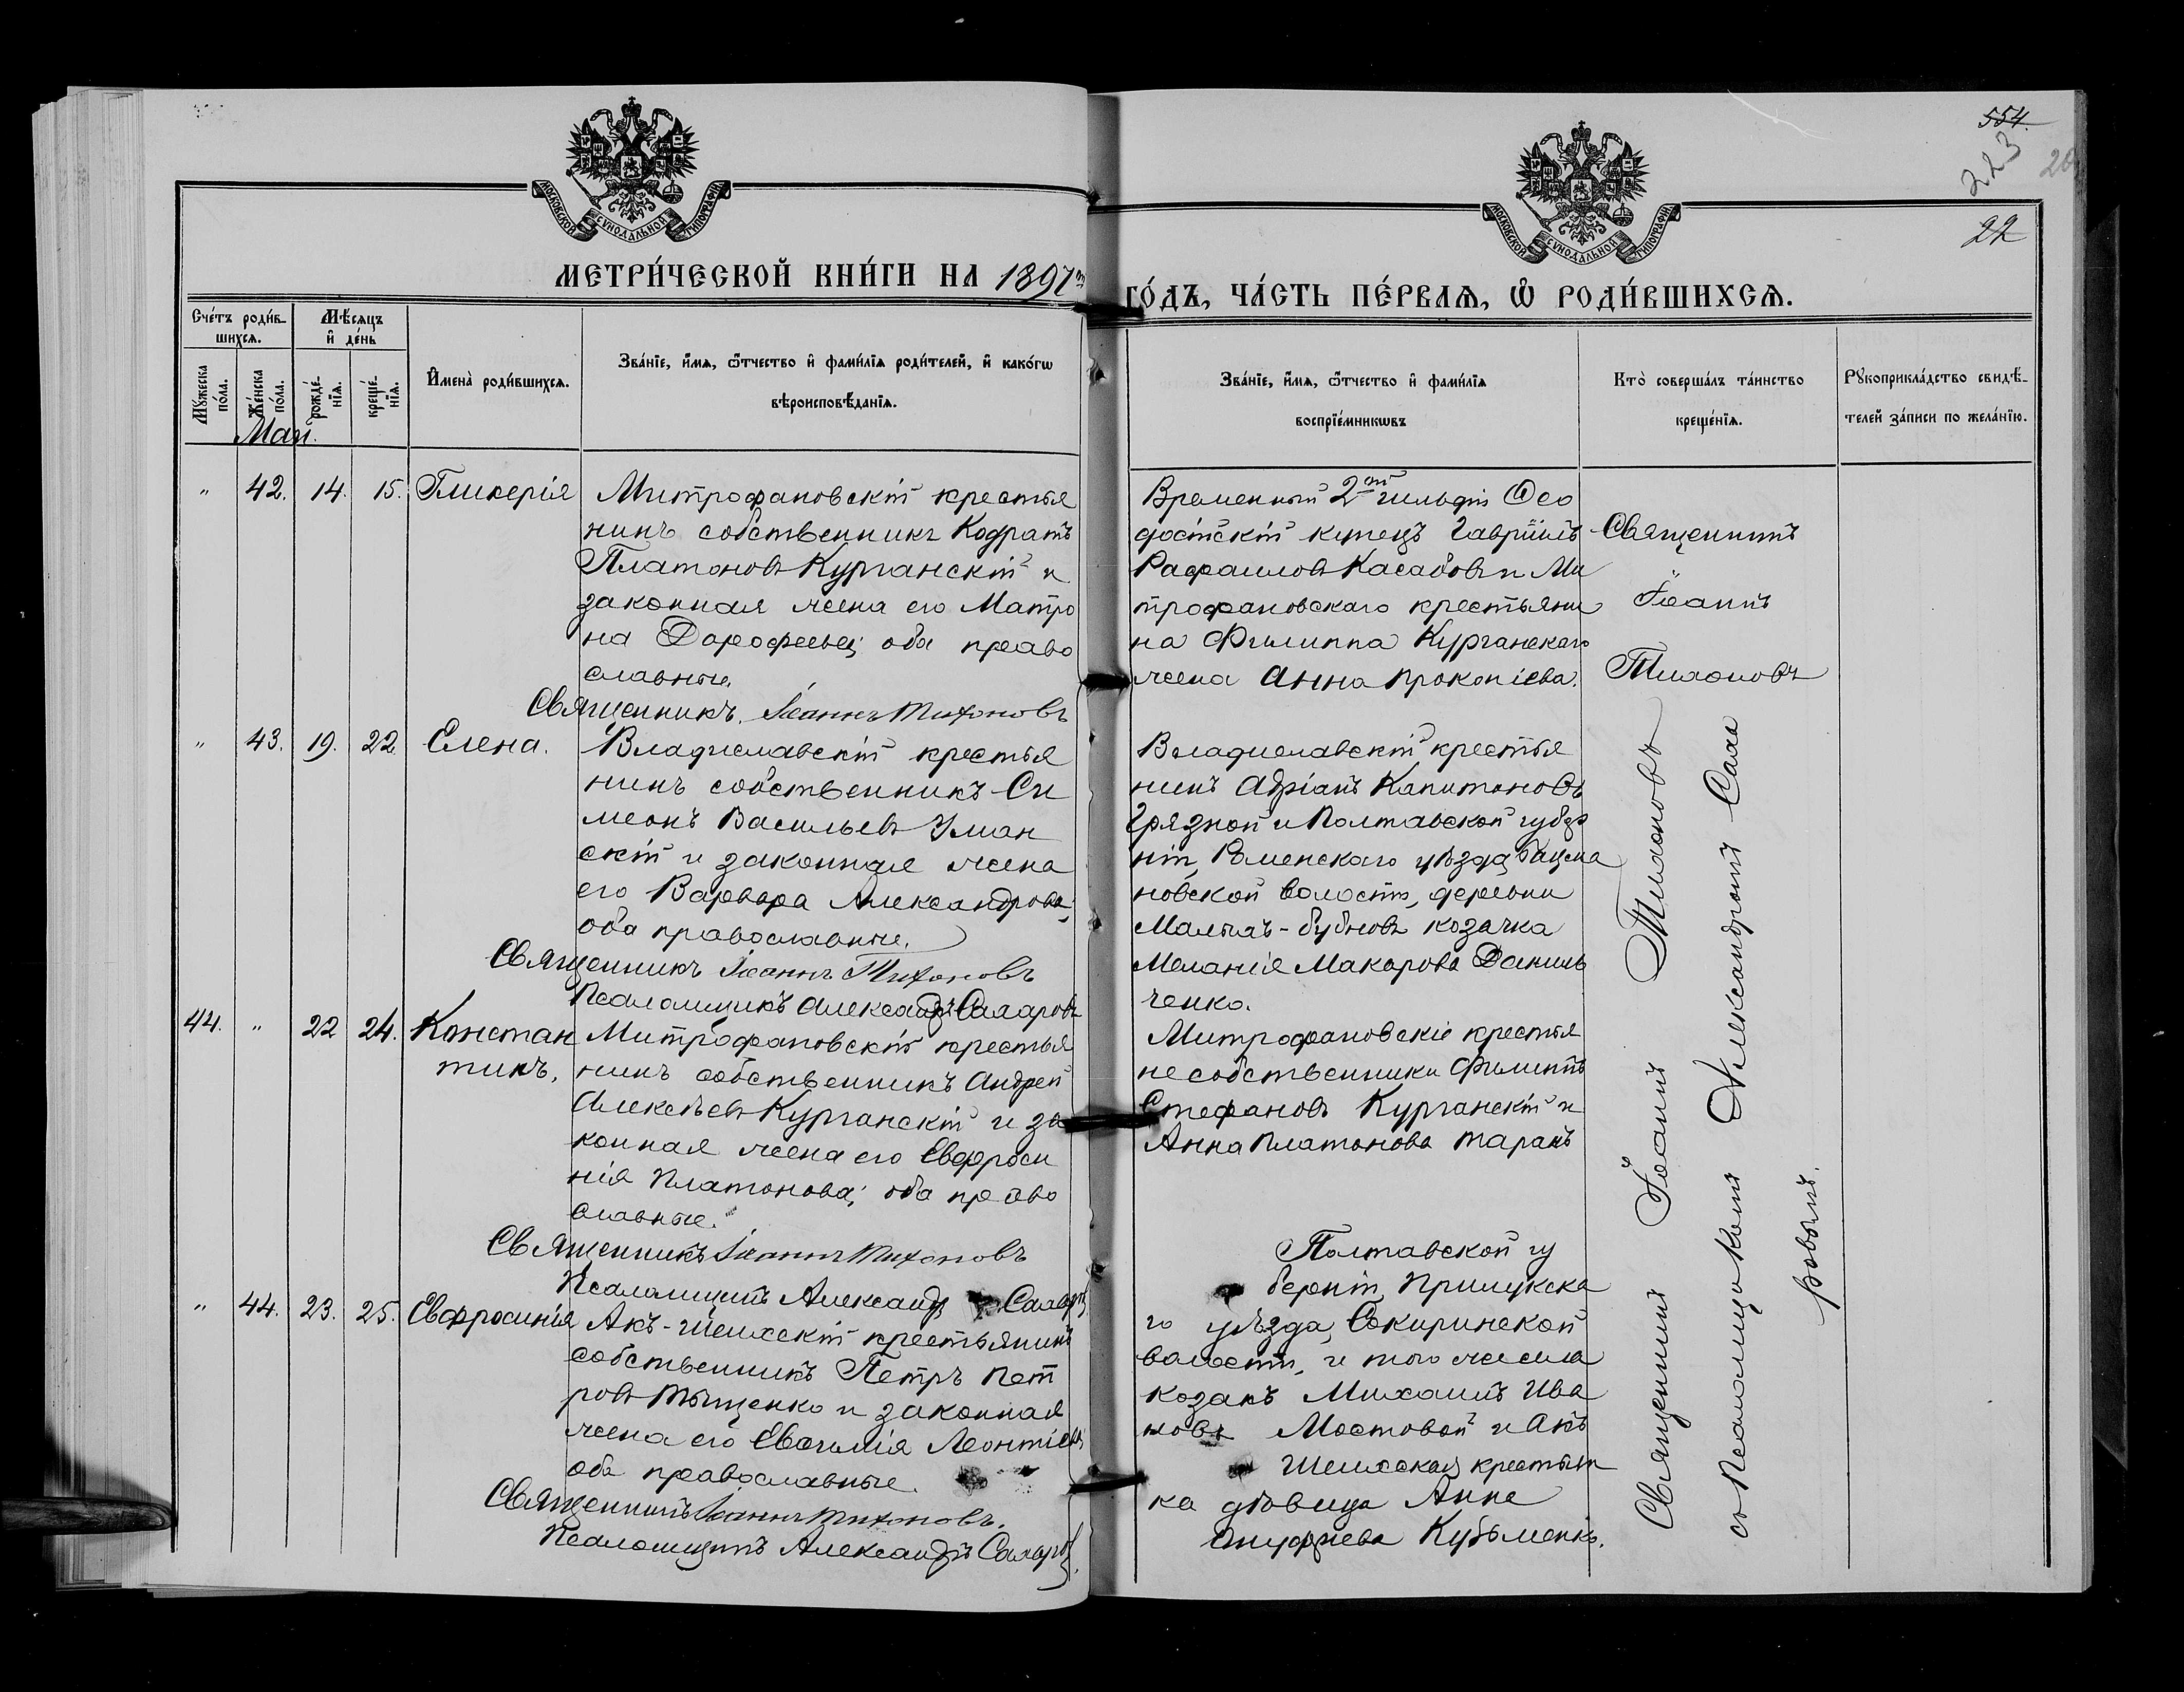 554.
223
20
22
МОСКОВСКОЙ СѴНОДАЛЬНОЙ ТИПОГРАФІИ
МОСКОВСКОЙ СѴНОДАЛЬНОЙ ТИПОГРАФІИ
МЕТРИ́ЧЕСКОЙ КНИ́ГИ НА 1897й
ГО́ДЪ, ЧА́СТЬ ПЕ́РВАѦ, Ѡ҆ РОДИ́ВШИХСѦ.
Сче́тъ роди́в-
шихсѧ.
Мѣ́сѧцъ
и҆ де́нь
Мꙋ́жеска
по́ла.
Же́нска
по́ла.
рожде́-
нїѧ.
креще́-
нїѧ.
И҆мена̀ роди́вшихсѧ.
Зва́нїе, и҆́мѧ, ѻ҆́тчество и҆ фами́лїѧ роди́телей, и҆ како́гѡ
вѣроисповѣ́данїѧ.
Зва́нїе, и҆́мѧ, ѻ҆́тчество и҆ фами́лїѧ
воспрїе́мникѡвъ
Кто̀ соверша́лъ та́инство
креще́нїѧ.
Рꙋкоприкла́дство свидѣ́-
телей за́писи по жела́нїю.
Май.
" 42. 14. 15. Гликерія
Митрофановскій крестья
нинъ собственникъ Кодратъ
Платоновъ Курганскій и
законная жена его Матро
на Дорофеева; оба право
славные.
Священникъ Іоаннъ Тихоновъ
Временный 2ой гильдіи Ѳео
досійскій купецъ Гавріилъ
Рафаиловъ Касабовъ и Ми
трофановскаго крестьяни
на Филиппа Курганскаго
жена Анна Прокопіева.
Священникъ
Іоаннъ
Тихоновъ
" 43. 19. 22. Елена.
Владиславскій крестья
нинъ собственникъ Си
меонъ Васильевъ Уман
скій и законная жена
его Варвара Александрова;
оба православные.
Священникъ Іоаннъ Тихоновъ
Псаломщикъ Александръ Сахаровъ
Владиславскій крестья
нинъ Адріанъ Капитоновъ
Грязной и Полтавской губер
ніи, Роменскаго уѣзда, Бацма
новской волости, деревни
Малыхъ-Бубновъ козачка
Меланія Макарова Даниль
ченко.
44. " 22 24. Констан
тинъ.
Митрофановскій крестья
нинъ собственникъ Андрей
Алексѣевъ Курганскій и за
конная жена его Евфроси
нія Платонова; оба право
славные.
Священникъ Іоаннъ Тихоновъ
Псаломщикъ Александръ Сахаровъ
Митрофановскіе крестья
не собственники Филиппъ
Стефановъ Курганскій и
Анна Платонова Таранъ
" 44. 23. 25. Евфросинія
Акъ-Шеихскій крестьянинъ
собственникъ Петръ Пет
ровъ Тыщенко и законная
жена его Евфимія Леонтіева
оба православные.
Священникъ Іоаннъ Тихоновъ.
Псаломщикъ Александръ Сахаровъ.
Полтавской гу
берніи, Прилукска
го уѣзда, Сокиринской
волости, и того же села
козакъ Михаилъ Ива
новъ Мостовой и Акъ
Шеихская крестьян
ка дѣвица Анна
Онуфріева Кузьменко.
Священникъ Іоаннъ Тихоновъ
съ Псаломщикомъ Александромъ Саха
ровымъ.